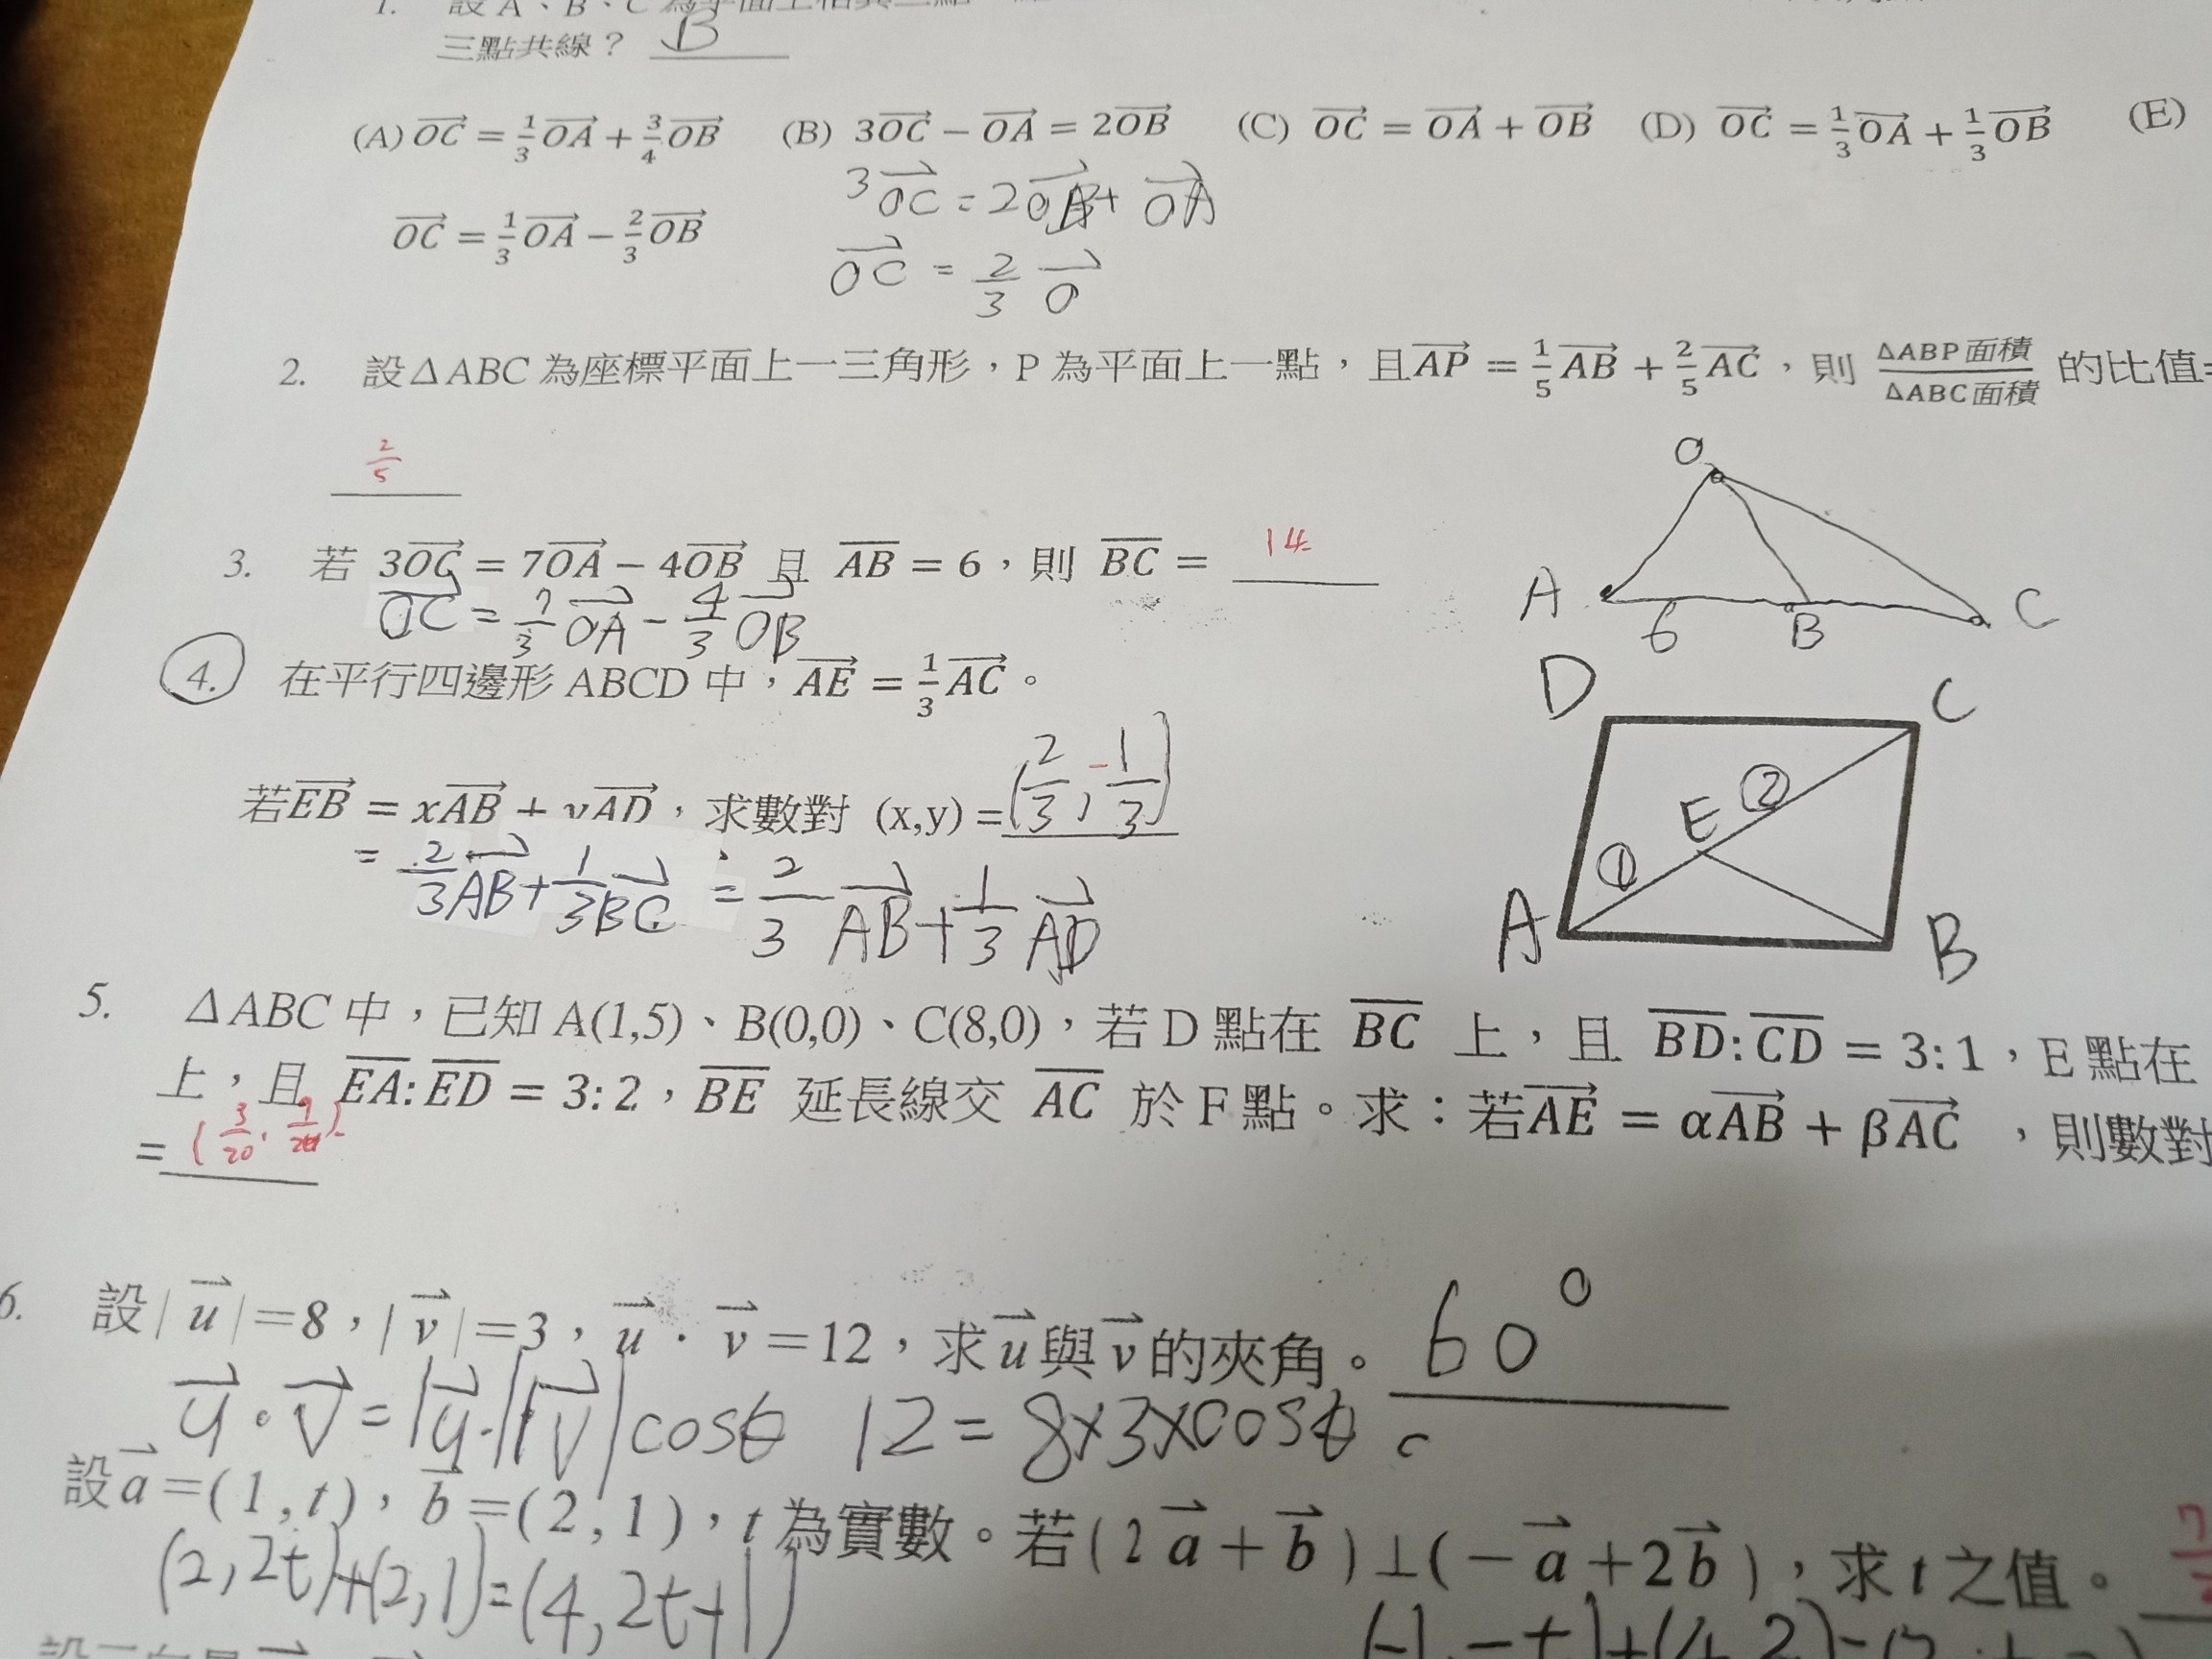 1. 設 A、B、C 為平面上相異三點
三點共線? B
(A) OC = 1/3 OA + 3/4 OB (B) 3OC − OA = 2OB (C) OC = OA + OB (D) OC = 1/3 OA + 1/3 OB (E)
3OC = 2OB + OA
OC = 1/3 OA − 2/3 OB
OC = 2/3 O
2. 設 Δ ABC 為座標平面上一三角形,P 為平面上一點,且 AP = 1/5 AB + 2/5 AC,則 ΔABP面積/ΔABC面積 的比值=
2/5
O
A 6 B C
3. 若 3OC = 7OA − 4OB 且 AB = 6,則 BC = 14
OC = 7/3 OA − 4/3 OB
4. 在平行四邊形 ABCD 中,AE = 1/3 AC。
D C
E ②
①
A B
若 EB = xAB + yAD,求數對 (x,y) = (2/3, -1/3)
= 2/3 AB + 1/3 BC = 2/3 AB + 1/3 AD
5. Δ ABC 中,已知 A(1,5)、B(0,0)、C(8,0),若 D 點在 BC 上,且 BD:CD = 3:1,E 點在
上,且 EA:ED = 3:2,BE 延長線交 AC 於 F 點。求:若 AE = αAB + βAC ,則數對
= (3/20, 9/20)
6. 設| u |=8,| v |=3,u · v =12,求 u 與 v 的夾角。 60°
u · v = |u| |v| cosθ 12 = 8×3×cosθ c
設 a =(1,t),b =(2,1),t 為實數。若(2 a + b )⊥(− a +2 b ),求 t 之值。
(2,2t)+(2,1)=(4,2t+1)
(-1,-t)+(4,2)=(3